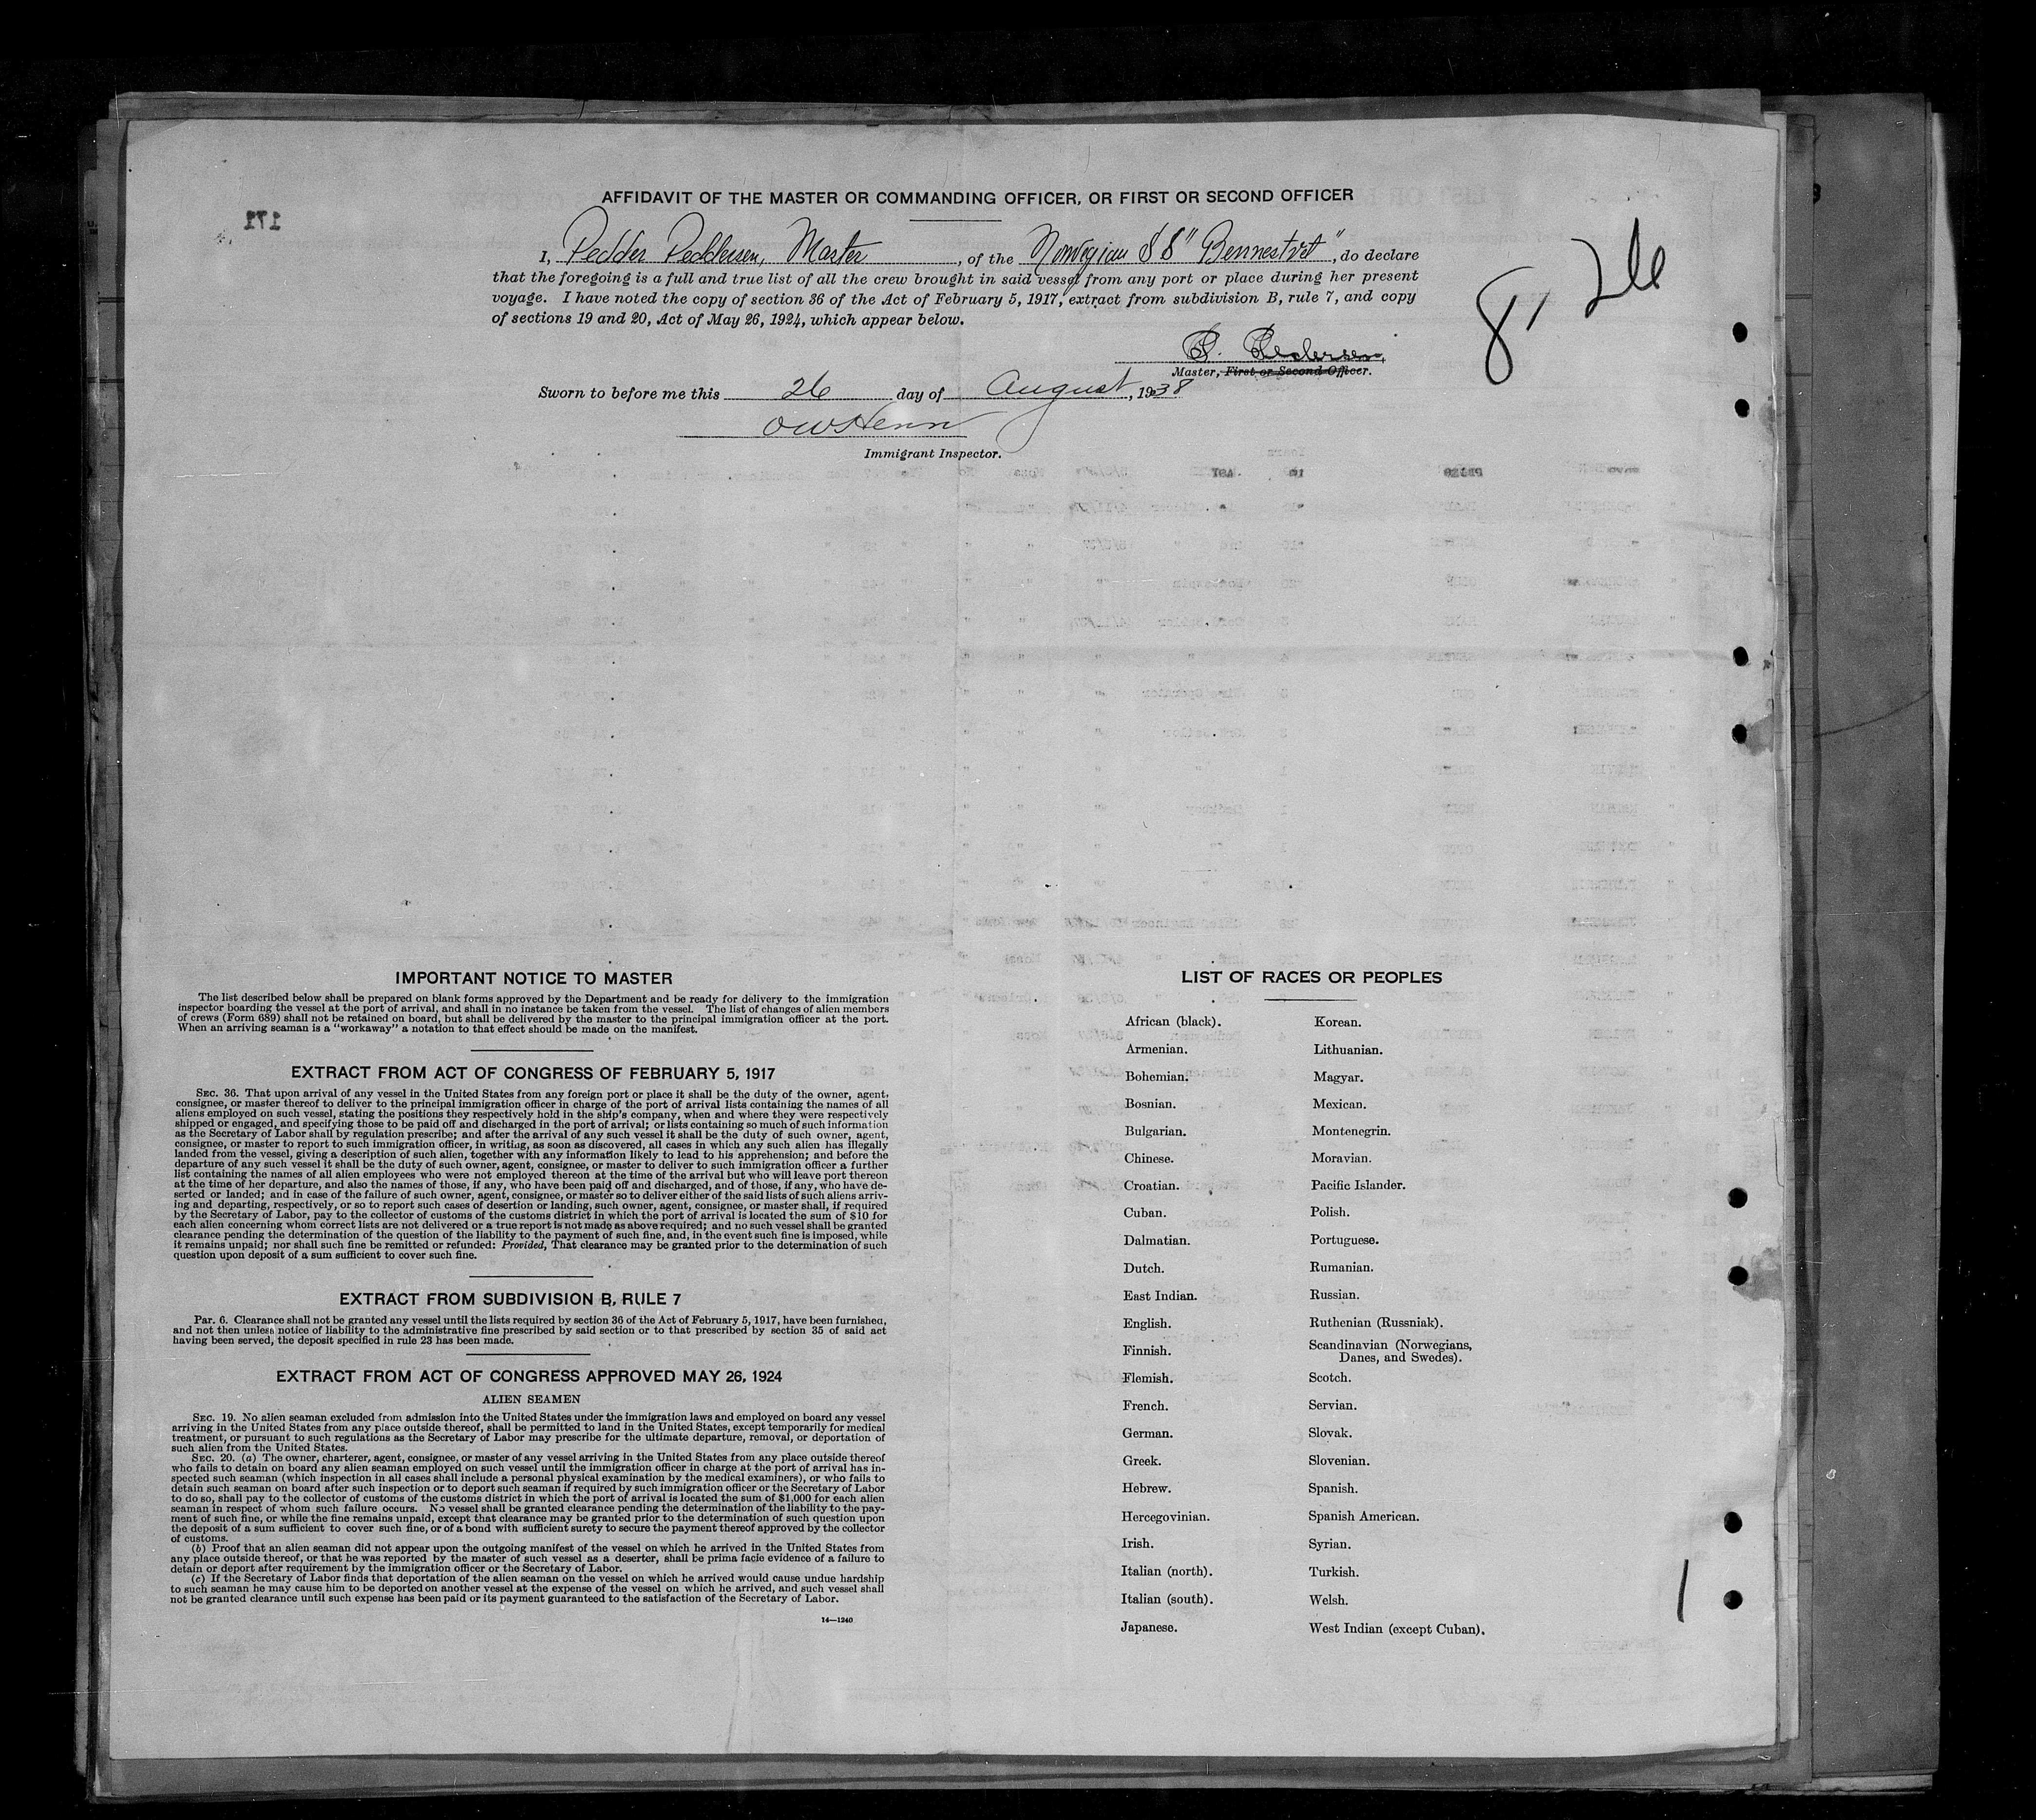 AFFIDAVIT OF THE MASTER OR COMMANDING OFFICER, OR FIRST OR SECOND OFFICER
171
I, Pedder Peddersen, Master, of the Norwegian SS "Bennestvet", do declare
that the foregoing is a full and true list of all the crew brought in said vessel from any port or place during her present
voyage. I have noted the copy of section 36 of the Act of February 5, 1917, extract from subdivision B, rule 7, and copy
of sections 19 and 20, Act of May 26, 1924, which appear below.
8' 26
P. Pedersen,
Master, First or Second Officer.
Sworn to before me this 26 day of August, 1938
Immigrant Inspector.
IMPORTANT NOTICE TO MASTER
The list described below shall be prepared on blank forms approved by the Department and be ready for delivery to the immigration
inspector boarding the vessel at the port of arrival, and shall in no instance be taken from the vessel. The list of changes of alien members
of crews (Form 689) shall not be retained on board, but shall be delivered by the master to the principal immigration officer at the port.
When an arriving seaman is a "workaway" a notation to that effect should be made on the manifest.
EXTRACT FROM ACT OF CONGRESS OF FEBRUARY 5, 1917
SEC. 36. That upon arrival of any vessel in the United States from any foreign port or place it shall be the duty of the owner, agent,
consignee, or master thereof to deliver to the principal immigration officer in charge of the port of arrival lists containing the names of all
aliens employed on such vessel, stating the positions they respectively hold in the ship's company, when and where they were respectively
shipped or engaged, and specifying those to be paid off and discharged in the port of arrival; or lists containing so much of such information
as the Secretary of Labor shall by regulation prescribe; and after the arrival of any such vessel it shall be the duty of such owner, agent,
consignee, or master to report to such immigration officer, in writing, as soon as discovered, all cases in which any such alien has illegally
landed from the vessel, giving a description of such alien, together with any information likely to lead to his apprehension; and before the
departure of any such vessel it shall be the duty of such owner, agent, consignee, or master to deliver to such immigration officer a further
list containing the names of all alien employees who were not employed thereon at the time of the arrival but who will leave port thereon
at the time of her departure, and also the names of those, if any, who have been paid off and discharged, and of those, if any, who have de-
serted or landed; and in case of the failure of such owner, agent, consignee, or master so to deliver either of the said lists of such aliens arriv-
ing and departing, respectively, or so to report such cases of desertion or landing, such owner, agent, consignee, or master shall, if required
by the Secretary of Labor, pay to the collector of customs of the customs district in which the port of arrival is located the sum of $10 for
each alien concerning whom correct lists are not delivered or a true report is not made as above required; and no such vessel shall be granted
clearance pending the determination of the question of the liability to the payment of such fine, and, in the event such fine is imposed, while
it remains unpaid; nor shall such fine be remitted or refunded: Provided, That clearance may be granted prior to the determination of such
question upon deposit of a sum sufficient to cover such fine.
EXTRACT FROM SUBDIVISION B, RULE 7
Par. 6. Clearance shall not be granted any vessel until the lists required by section 36 of the Act of February 5, 1917, have been furnished,
and not then unless notice of liability to the administrative fine prescribed by said section or to that prescribed by section 35 of said act
having been served, the deposit specified in rule 23 has been made.
EXTRACT FROM ACT OF CONGRESS APPROVED MAY 26, 1924
ALIEN SEAMEN
SEC. 19. No alien seaman excluded from admission into the United States under the immigration laws and employed on board any vessel
arriving in the United States from any place outside thereof, shall be permitted to land in the United States, except temporarily for medical
treatment, or pursuant to such regulations as the Secretary of Labor may prescribe for the ultimate departure, removal, or deportation of
such alien from the United States.
SEC. 20. (a) The owner, charterer, agent, consignee, or master of any vessel arriving in the United States from any place outside thereof
who fails to detain on board any alien seaman employed on such vessel until the immigration officer in charge at the port of arrival has in-
spected such seaman (which inspection in all cases shall include a personal physical examination by the medical examiners), or who fails to
detain such seaman on board after such inspection or to deport such seaman if required by such immigration officer or the Secretary of Labor
to do so, shall pay to the collector of customs of the customs district in which the port of arrival is located the sum of $1,000 for each alien
seaman in respect of whom such failure occurs. No vessel shall be granted clearance pending the determination of the liability to the pay-
ment of such fine, or while the fine remains unpaid, except that clearance may be granted prior to the determination of such question upon
the deposit of a sum sufficient to cover such fine, or of a bond with sufficient surety to secure the payment thereof approved by the collector
of customs.
(b) Proof that an alien seaman did not appear upon the outgoing manifest of the vessel on which he arrived in the United States from
any place outside thereof, or that he was reported by the master of such vessel as a deserter, shall be prima facie evidence of a failure to
detain or deport after requirement by the immigration officer or the Secretary of Labor.
(c) If the Secretary of Labor finds that deportation of the alien seaman on the vessel on which he arrived would cause undue hardship
to such seaman he may cause him to be deported on another vessel at the expense of the vessel on which he arrived, and such vessel shall
not be granted clearance until such expense has been paid or its payment guaranteed to the satisfaction of the Secretary of Labor.
14—1240
LIST OF RACES OR PEOPLES
African (black). Korean.
Armenian. Lithuanian.
Bohemian. Magyar.
Bosnian. Mexican.
Bulgarian. Montenegrin.
Chinese. Moravian.
Croatian. Pacific Islander.
Cuban. Polish.
Dalmatian. Portuguese.
Dutch. Rumanian.
East Indian. Russian.
English. Ruthenian (Russniak).
Finnish. Scandinavian (Norwegians,
Danes, and Swedes).
Flemish. Scotch.
French. Servian.
German. Slovak.
Greek. Slovenian.
Hebrew. Spanish.
Hercegovinian. Spanish American.
Irish. Syrian.
Italian (north). Turkish.
Italian (south). Welsh.
Japanese. West Indian (except Cuban).
1